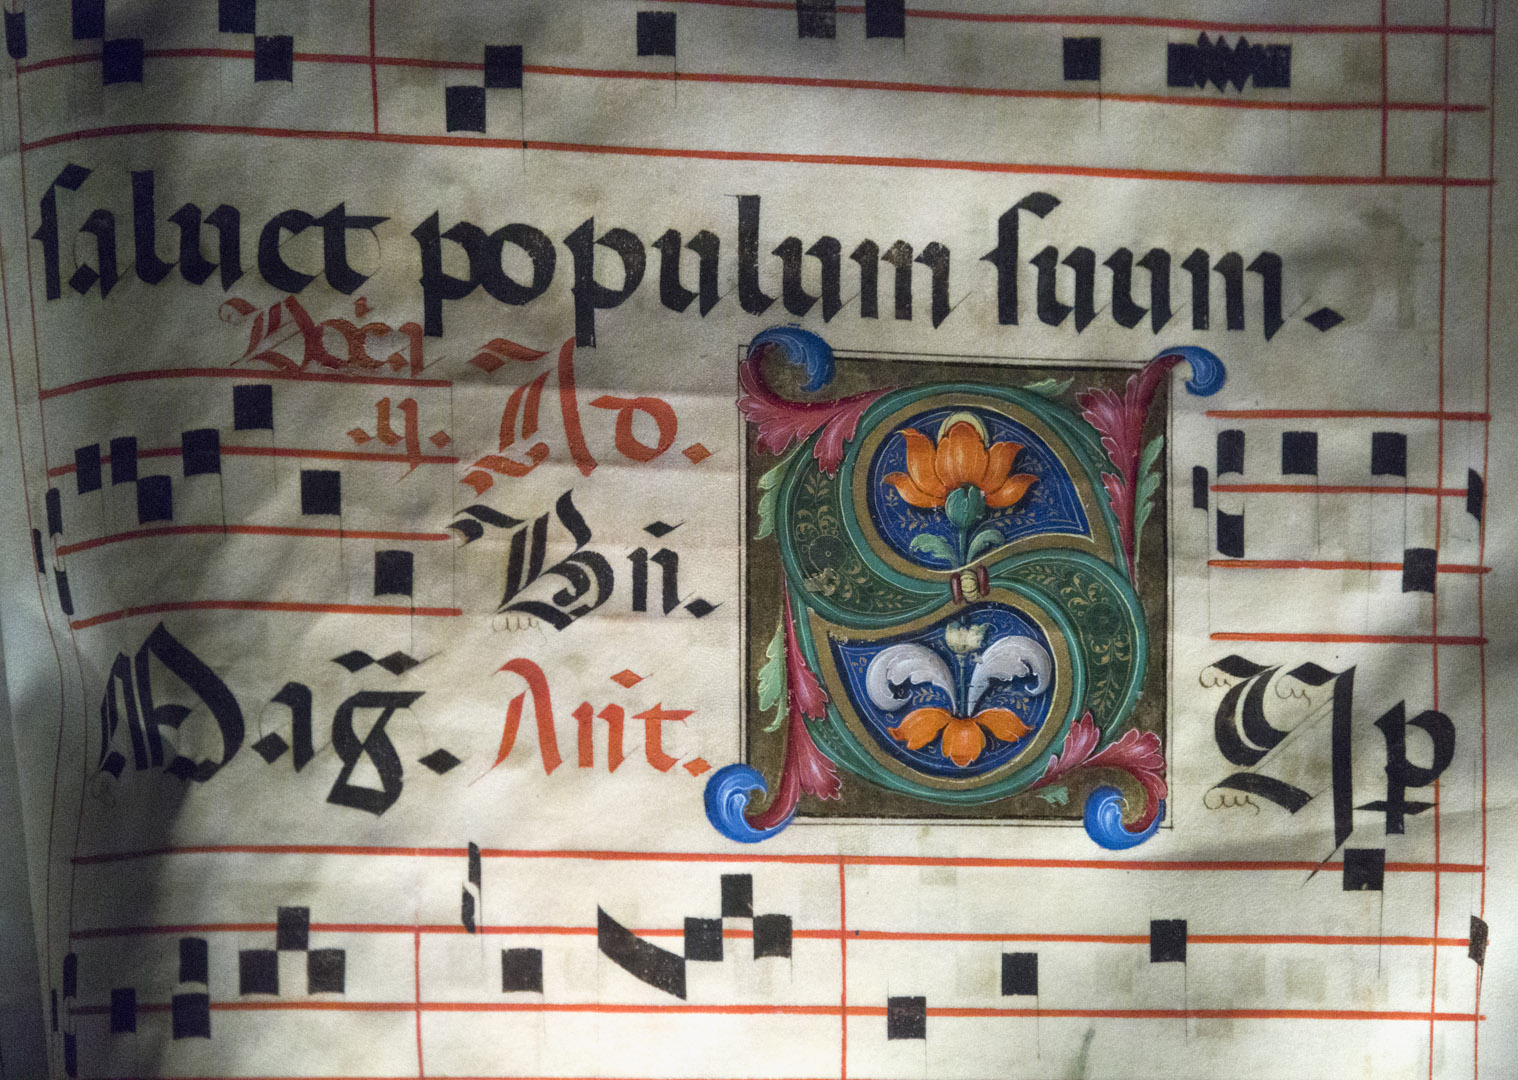 saluet populum suum.
Ad.
Bn̄.
Mag̃. Ant̄. S